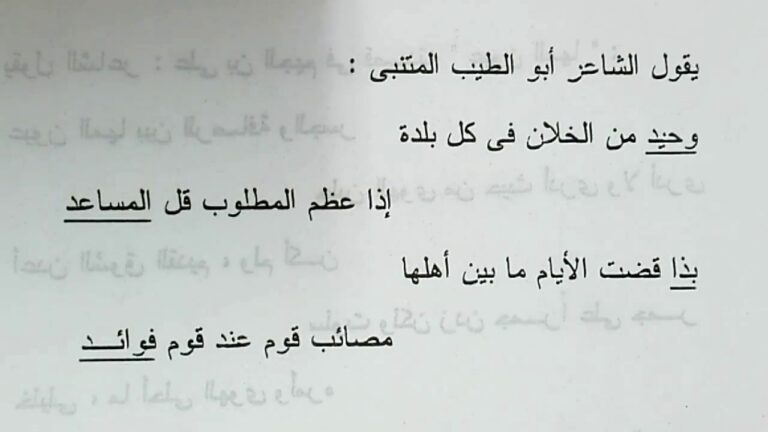 يقول الشاعر أبو الطيب المتنبى :
وحيد من الخلان فى كل بلدة
إذا عظم المطلوب قل المساعد
بذا قضت الأيام ما بين أهلها
مصائب قوم عند قوم فوائد